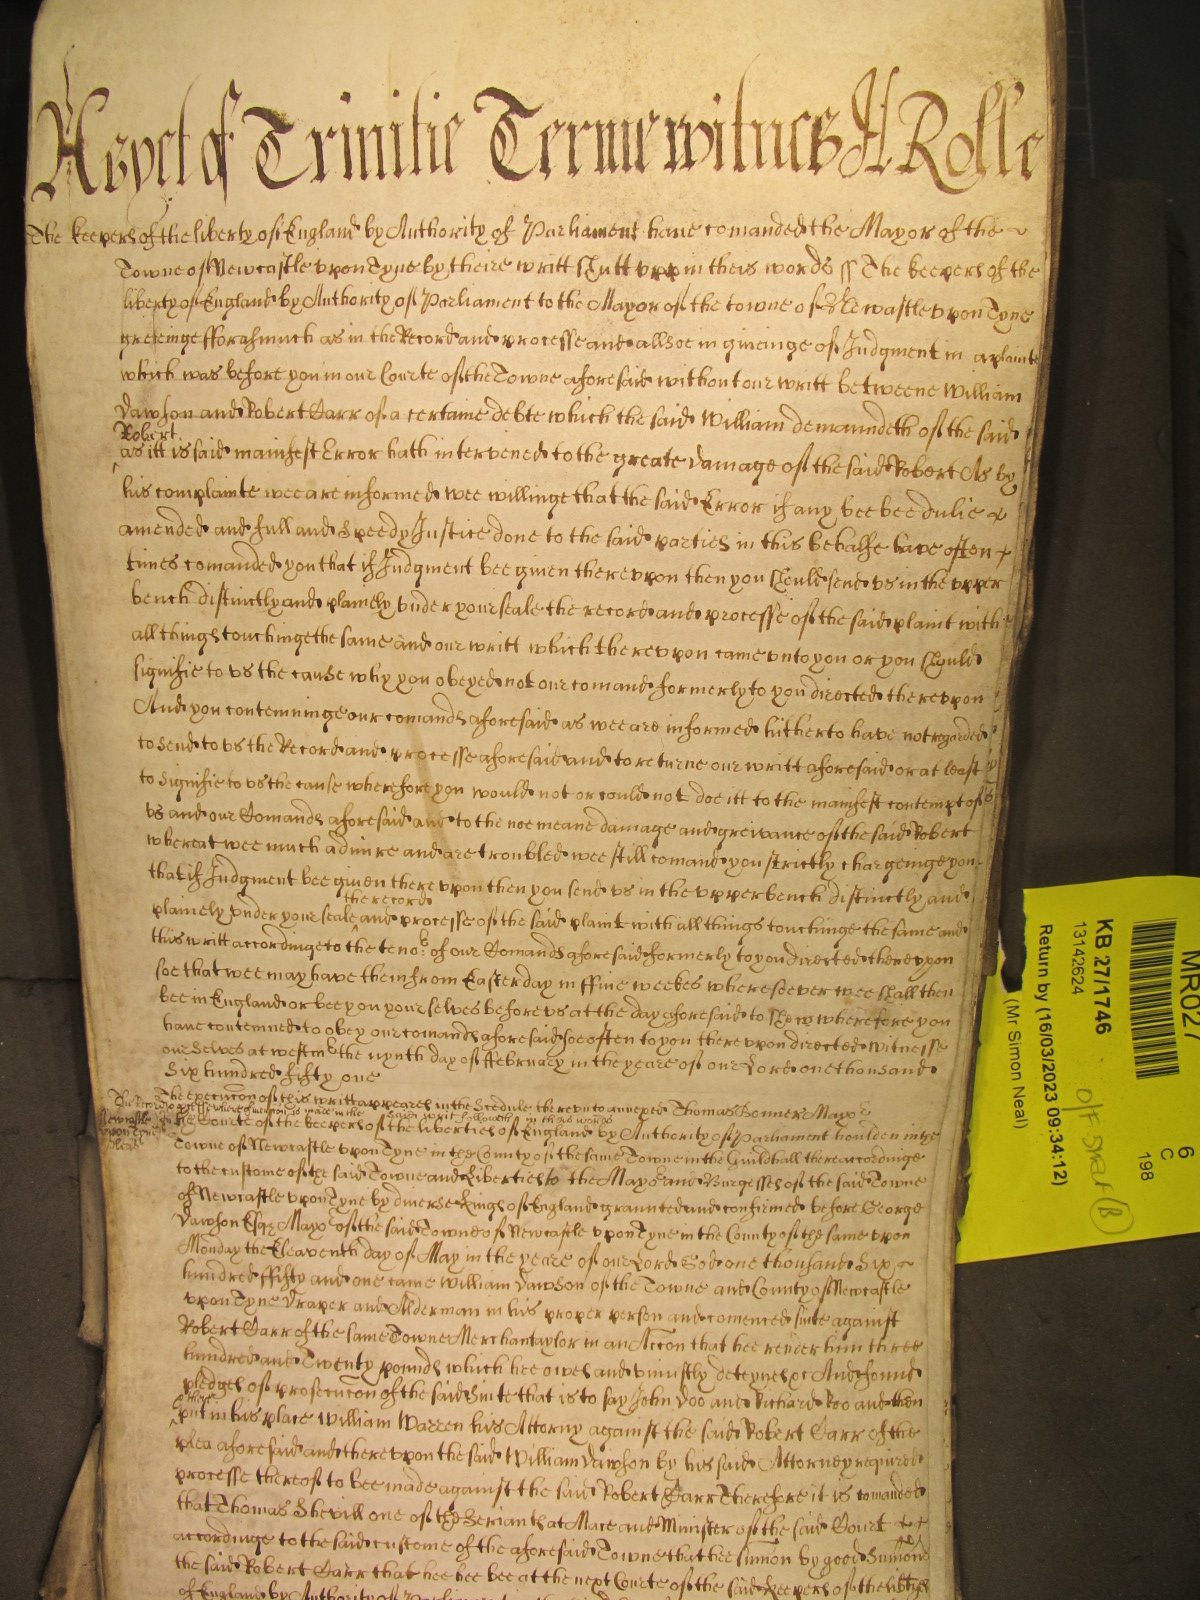 As yet of Trinitie Terme witnes H Rolle
The keepers of the liberty of England by Authority of Parliament have comanded the Mayor of the
Towne of Newcastle upon Tyne by theire writt shutt upp in theis words ss The keepers of the
liberty of England by Authority of Parliament to the Mayor of the towne of Newcastle upon Tyne
greeteinge fforasmuch as in the Record and processe and allsoe in giveinge of Judgment in a plainte
which was before you in our Courte of the Towne aforesaid without our writt betweene William
Dawson and Robert Carr of a certaine debte which the said William demaundeth of the said
Robert
as itt is said manifest Error hath intervened to the greate damage of the said Robert As by
his complainte wee are informed wee willinge that the said Error if any bee bee dulie
amended and full and speedy Justice done to the said parties in this behalfe have often
times comanded you that if Judgment bee given thereupon then you should send us in the upper
bench distinctly and plainely under your seale the record and processe of the said plaint with
all things touchinge the same and our writt which thereupon came unto you or you should
signifie to us the cause why you obeyed not our comand formerly to you directed thereupon
And you contemninge our comands aforesaid as wee are informed hitherto have not regarded
to send to us the Record and processe aforesaid and to returne our writt aforesaid or at least
to signifie to us the cause wherefore you would not or could not doe itt to the manifest contempt of
us and our Comands aforesaid and to the noe meane damage and greivance of the said Robert
whereat wee much admire and are troubled wee still comand you strictly chargeinge you
that if Judgment bee given thereupon then you send us in the upper bench distinctly and
the record
plainely under your seale and processe of the said plaint with all things touchinge the same and
this writt accordinge to the tenor of our Comands aforesaid formerly to you directed thereupon
soe that wee may have them from Easter day in ffive weekes wheresoever wee shall then
bee in England or bee you your selves before us at the day aforesaid to shew wherefore you
have contemned to obey our comands aforesaid soe often to you thereupon directed Witnesse
our selves at westmr the nynth day of ffebruary in the yeare of our Lord one thousand
Six hundred fifty one
The execucon of this writt appeares in the Scedule thereunto annexed Thomas Bonner Mayor
The Record and processe whereof mencon is made in the said writ followeth in these words
Newcastle upon Tyne
The Courte of the keepers of the liberties of England by Authority of Parliament houlden in the
Towne of Newcastle upon Tyne in the County of the same Towne in the Guildhall there accordinge
to the custome of the said Towne and Liberties to the Mayor and Burgesses of the said Towne
of Newcastle upon Tyne by diverse Kings of England graunted and confirmed before George
Dawson Esqr Mayor of the said Towne of Newcastle upon Tyne in the County of the same upon
Monday the Eleaventh day of May in the yeare of our Lord God one thousand Six
hundred ffifty and one came William Dawson of the Towne and County of Newcastle
upon Tyne Draper and Alderman in his proper person and comenced suite against
Robert Carr of the same Towne Merchantaylor in an Accon that hee render him three
hundred and Twenty pounds which hee owes and uniustly deteynes &c And found
pledges of prosecucon of the said Suite that is to say John Doo and Richard Roo and then
put in his place William Warren his Attorny against the said Robert Carr of the
plea aforesaid and thereupon the said William Dawson by his said Attorney required
processe thereof to bee made against the said Robert Carr Therefore it is comanded
that Thomas Shevill one of the Seriants at Mace and Minister of the said Court
accordinge to the said custome of the aforesaid Towne that hee sumon by good Sumons
the said Robert Carr that hee bee at the next Courte of the said keepers of the liberties
of England by Authority of Parliament
MR027
KB 27/1746
13142624
Return by (16/03/2023 09:34:12)
(Mr Simon Neal)
6
C
198